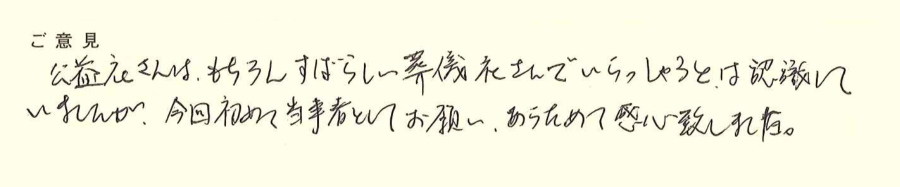 ご意見
公益社さんは、もちろんすばらしい葬儀社さんでいらっしゃるとは認識して
いましたが、今回初めて当事者としてお願いし、あらためて感心致しました。